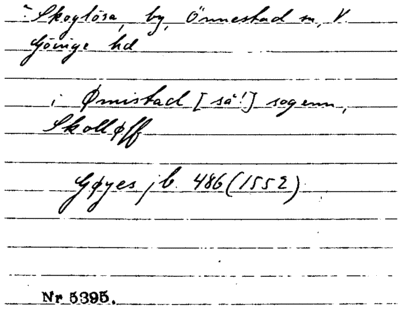 Skoglösa, by, Önnestad sn, V
Göinge hd
i Ømistad [så!] sogenn,
Skolløff
Gøyes jb. 486 (1552)
Nr 5395.